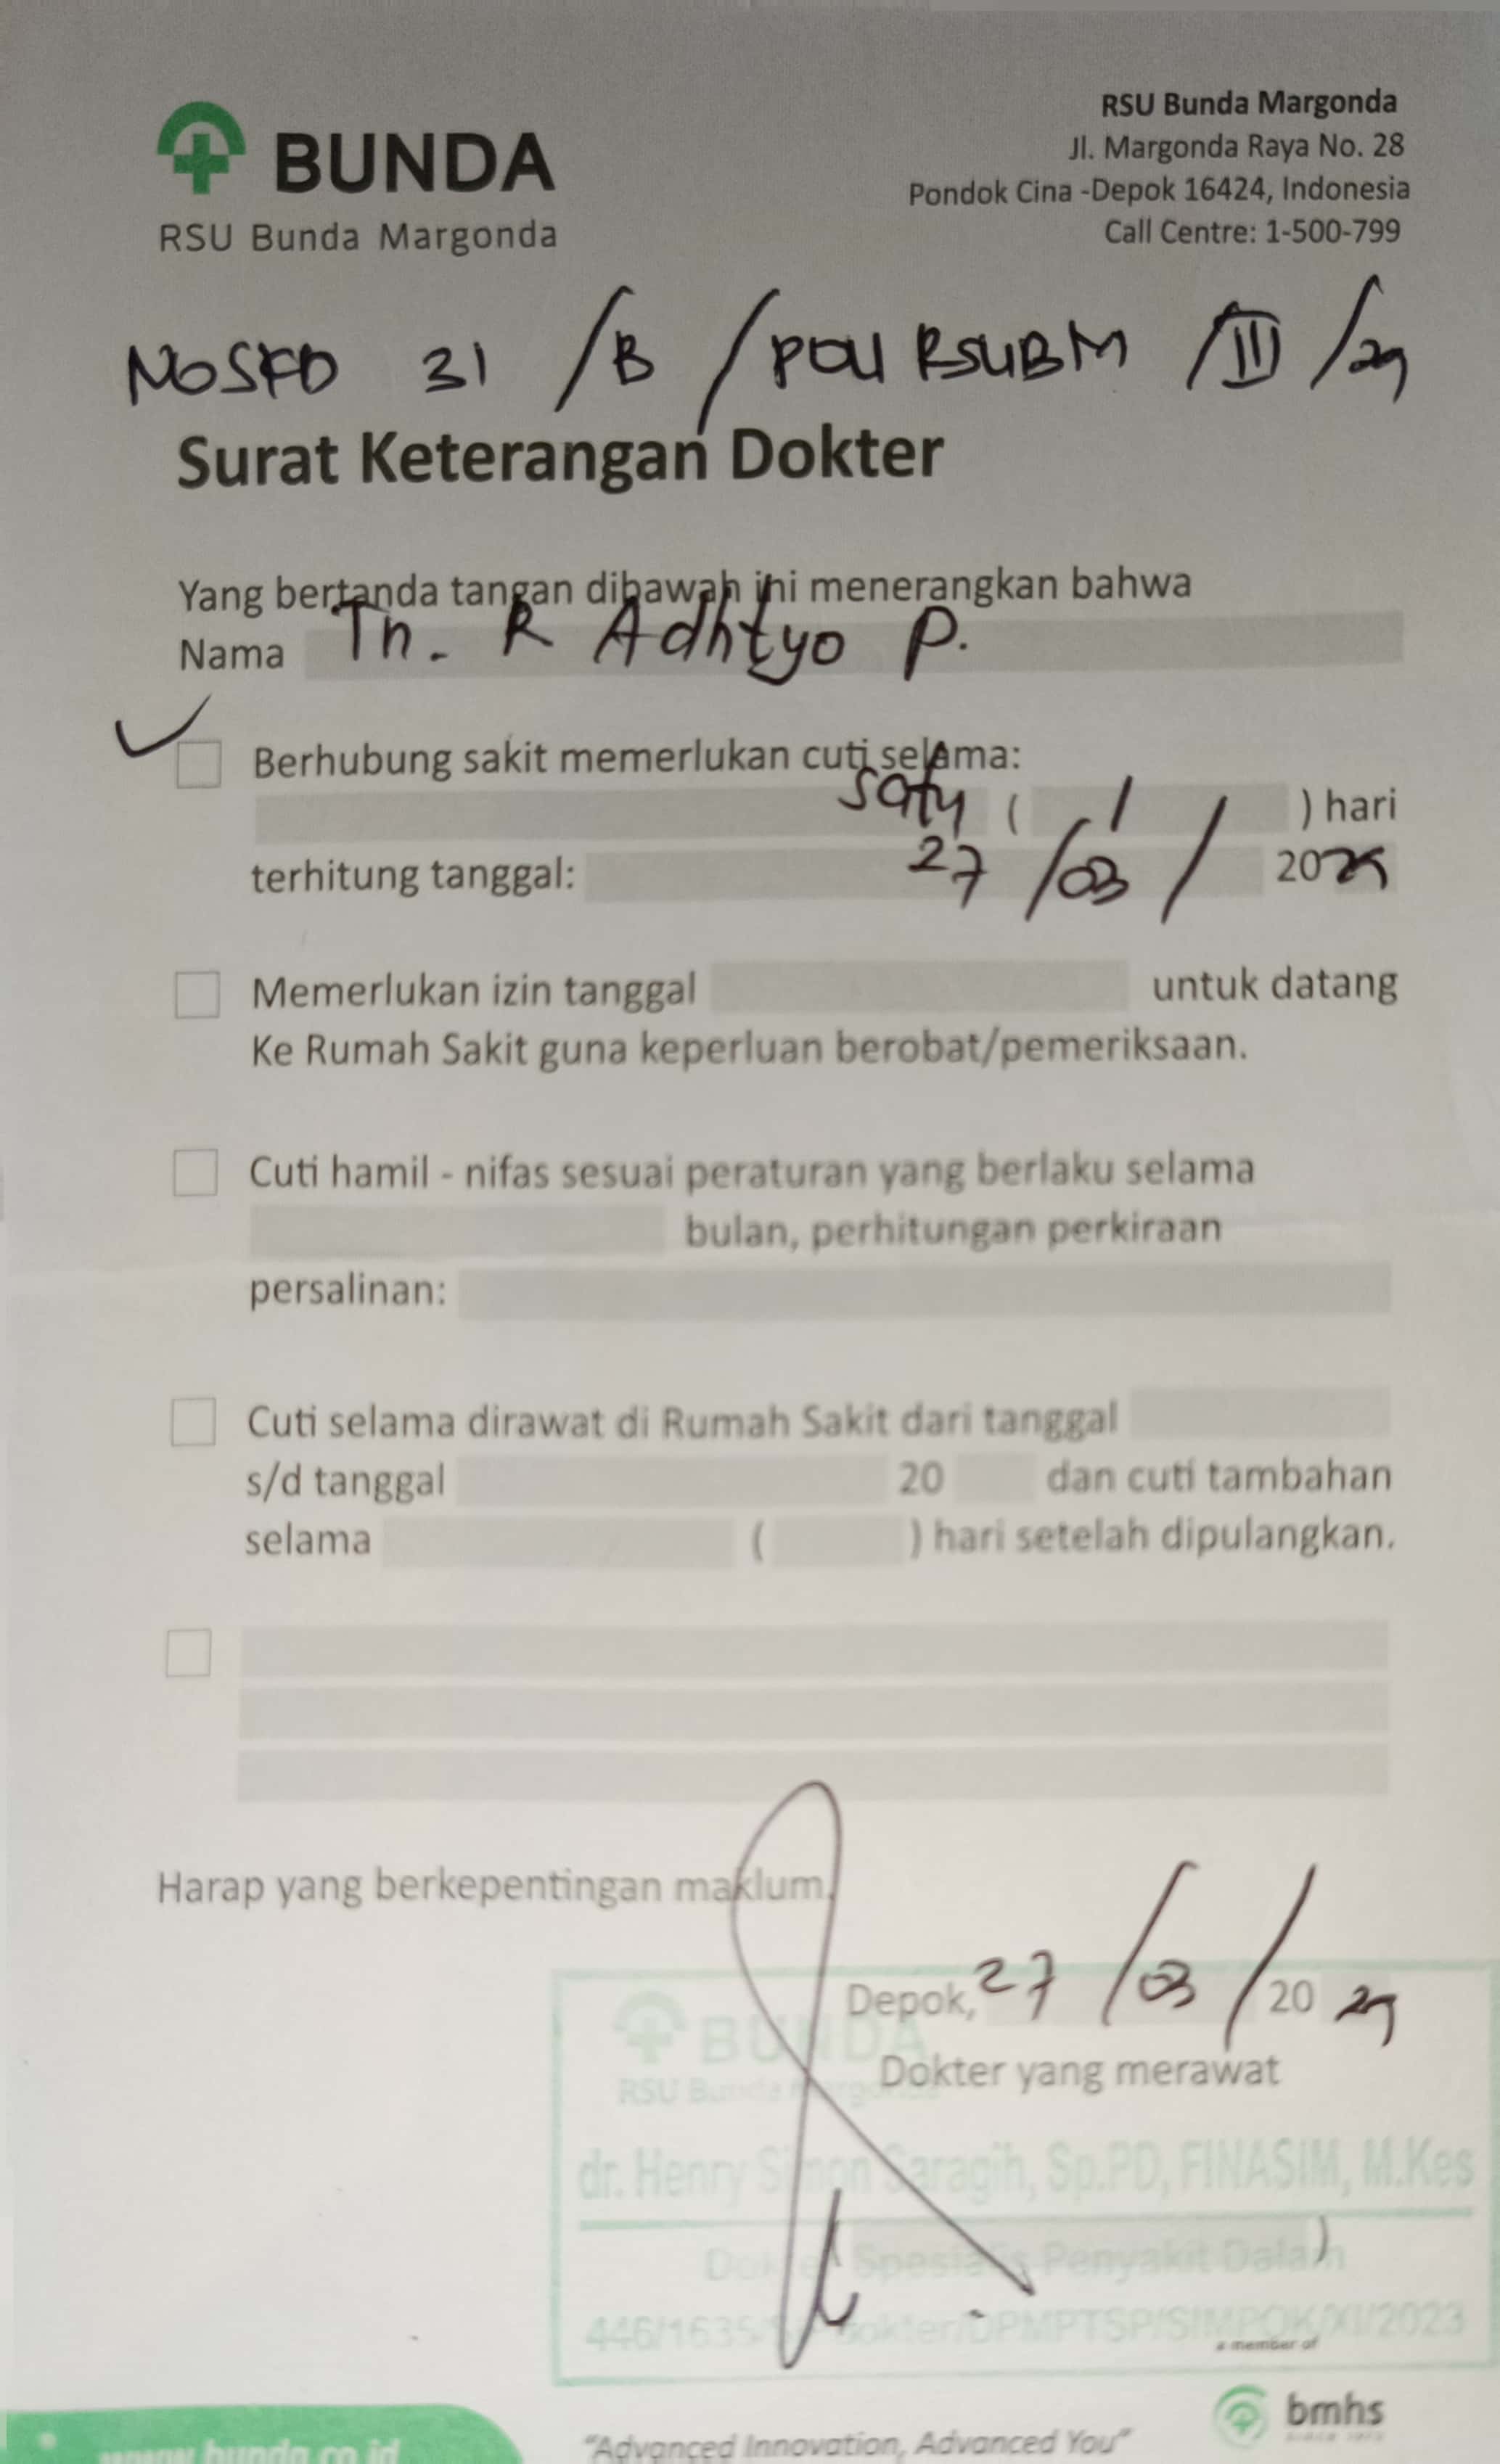 BUNDA
RSU Bunda Margonda
RSU Bunda Margonda
Jl. Margonda Raya No. 28
Pondok Cina -Depok 16424, Indonesia
Call Centre: 1-500-799
31 /B / RSUBM /III /
Surat Keterangan Dokter
Yang bertanda tangan dibawah ini menerangkan bahwa
Nama Tn. R Adhtyo P.
Berhubung sakit memerlukan cuti selama:
satu ( 1 ) hari
terhitung tanggal: 27 /03 / 2025
Memerlukan izin tanggal untuk datang
Ke Rumah Sakit guna keperluan berobat/pemeriksaan.
Cuti hamil - nifas sesuai peraturan yang berlaku selama
bulan, perhitungan perkiraan
persalinan:
Cuti selama dirawat di Rumah Sakit dari tanggal
s/d tanggal 20 dan cuti tambahan
selama ( ) hari setelah dipulangkan.
Harap yang berkepentingan maklum.
Depok, 27 /03 / 20 25
Dokter yang merawat
BUNDA
RSU Bunda Margonda
dr. Henry Simon Saragih, Sp.PD, FINASIM, M.Kes
( )
Dokter Spesialis Penyakit Dalam
a member of
bmhs
www.bunda.co.id
"Advanced Innovation, Advanced You"